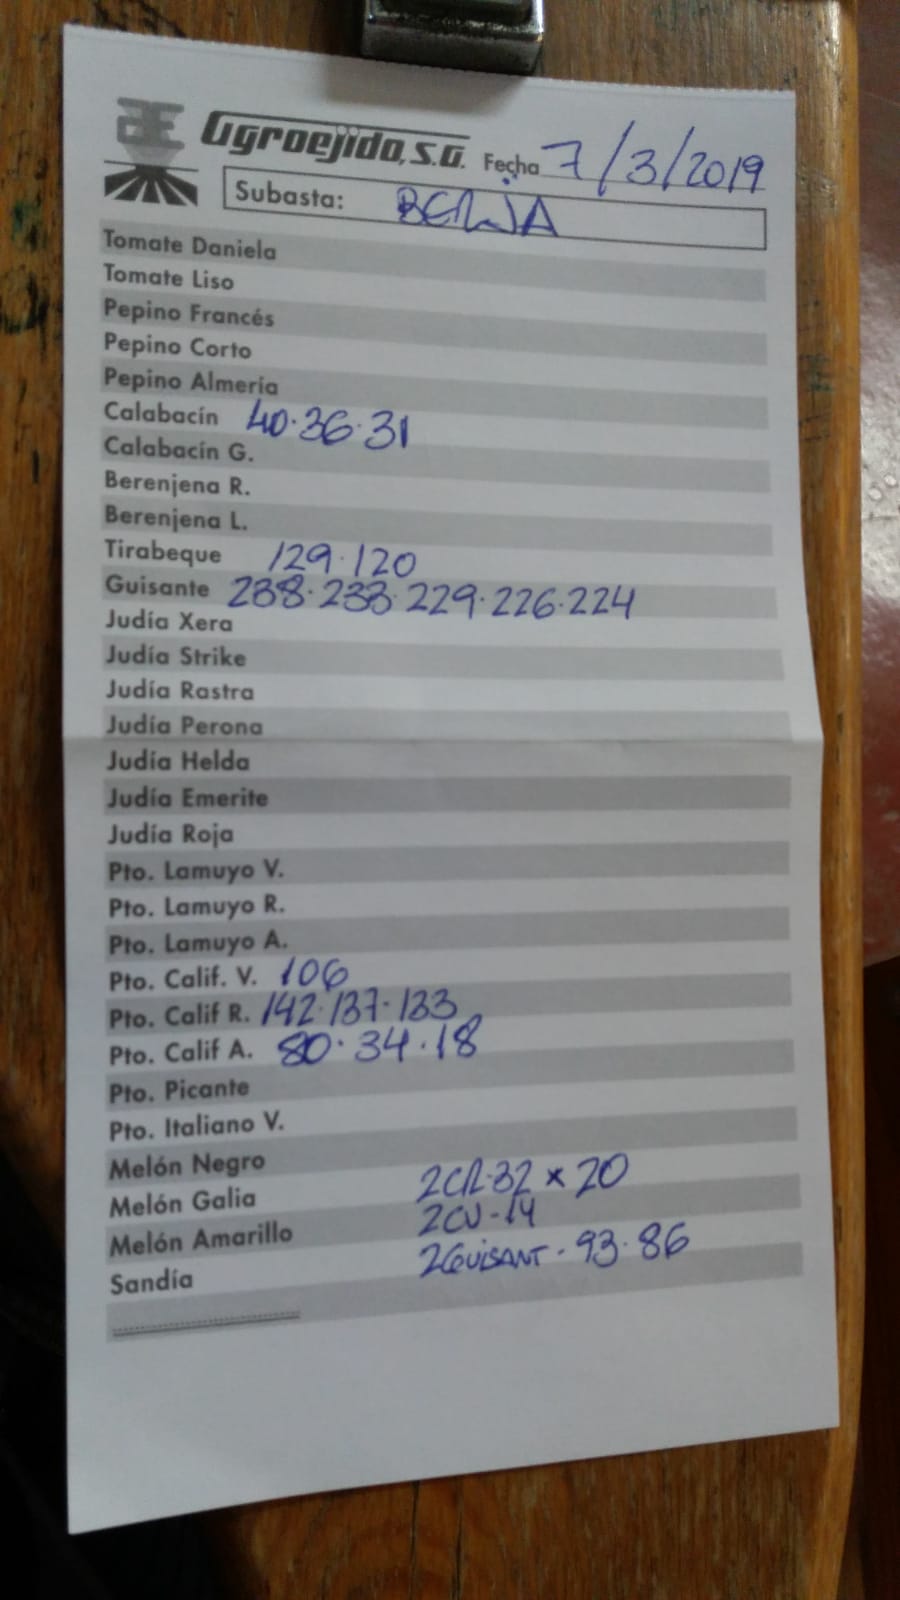 Agroejido, S.A. Fecha 7/3/2019
Subasta: BERJA
Tomate Daniela
Tomate Liso
Pepino Francés
Pepino Corto
Pepino Almería
Calabacín 40·36·31
Calabacín G.
Berenjena R.
Berenjena L.
Tirabeque 129·120
Guisante 238·233·229·226·224
Judía Xera
Judía Strike
Judía Rastra
Judía Perona
Judía Helda
Judía Emerite
Judía Roja
Pto. Lamuyo V.
Pto. Lamuyo R.
Pto. Lamuyo A.
Pto. Calif. V. 106
Pto. Calif R. 142·137·133
Pto. Calif A. 80·34·18
Pto. Picante
Pto. Italiano V.
Melón Negro
Melón Galia 2CR·32 x 20
Melón Amarillo 2CV-14
Sandía 2GUISANT·93·86